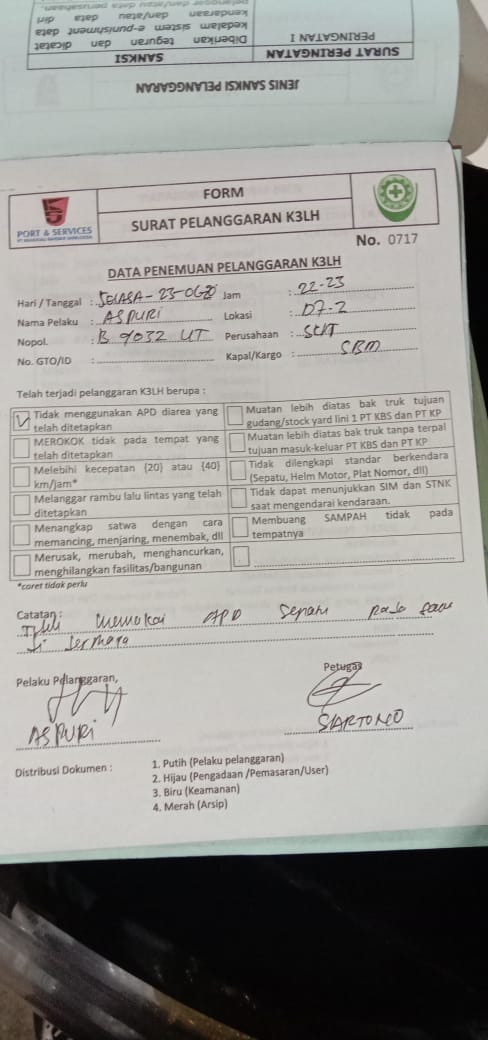 JENIS SANKSI PELANGGARAN
SURAT PERINGATAN
SANKSI
PERINGATAN I
Diberikan teguran dan dicatat
kedalam sistem e-punishment data
kendaraan dan/atau data diri
pelanggar dan/atau data perusahaan.
FORM
SURAT PELANGGARAN K3LH
PORT & SERVICES
No. 0717
DATA PENEMUAN PELANGGARAN K3LH
Hari / Tanggal : SELASA - 23-06-20 Jam : 22-23
Nama Pelaku : ASPURI Lokasi : D7-2
Nopol. : B 9032 UT Perusahaan :
No. GTO/ID : Kapal/Kargo : SBM
Telah terjadi pelanggaran K3LH berupa :
Tidak menggunakan APD diarea yang telah ditetapkan
Muatan lebih diatas bak truk tujuan gudang/stock yard lini 1 PT KBS dan PT KP
MEROKOK tidak pada tempat yang telah ditetapkan
Muatan lebih diatas bak truk tanpa terpal tujuan masuk-keluar PT KBS dan PT KP
Melebihi kecepatan {20} atau {40} km/jam*
Tidak dilengkapi standar berkendara (Sepatu, Helm Motor, Plat Nomor, dll)
Melanggar rambu lalu lintas yang telah ditetapkan
Tidak dapat menunjukkan SIM dan STNK saat mengendarai kendaraan.
Menangkap satwa dengan cara memancing, menjaring, menembak, dll
Membuang SAMPAH tidak pada tempatnya
Merusak, merubah, menghancurkan, menghilangkan fasilitas/bangunan
*coret tidak perlu
Catatan :
memakai APD sepatu pada
di dermaga
Pelaku Pelanggaran,
Petugas
ASPURI
SARTONO
Distribusi Dokumen :
1. Putih (Pelaku pelanggaran)
2. Hijau (Pengadaan /Pemasaran/User)
3. Biru (Keamanan)
4. Merah (Arsip)